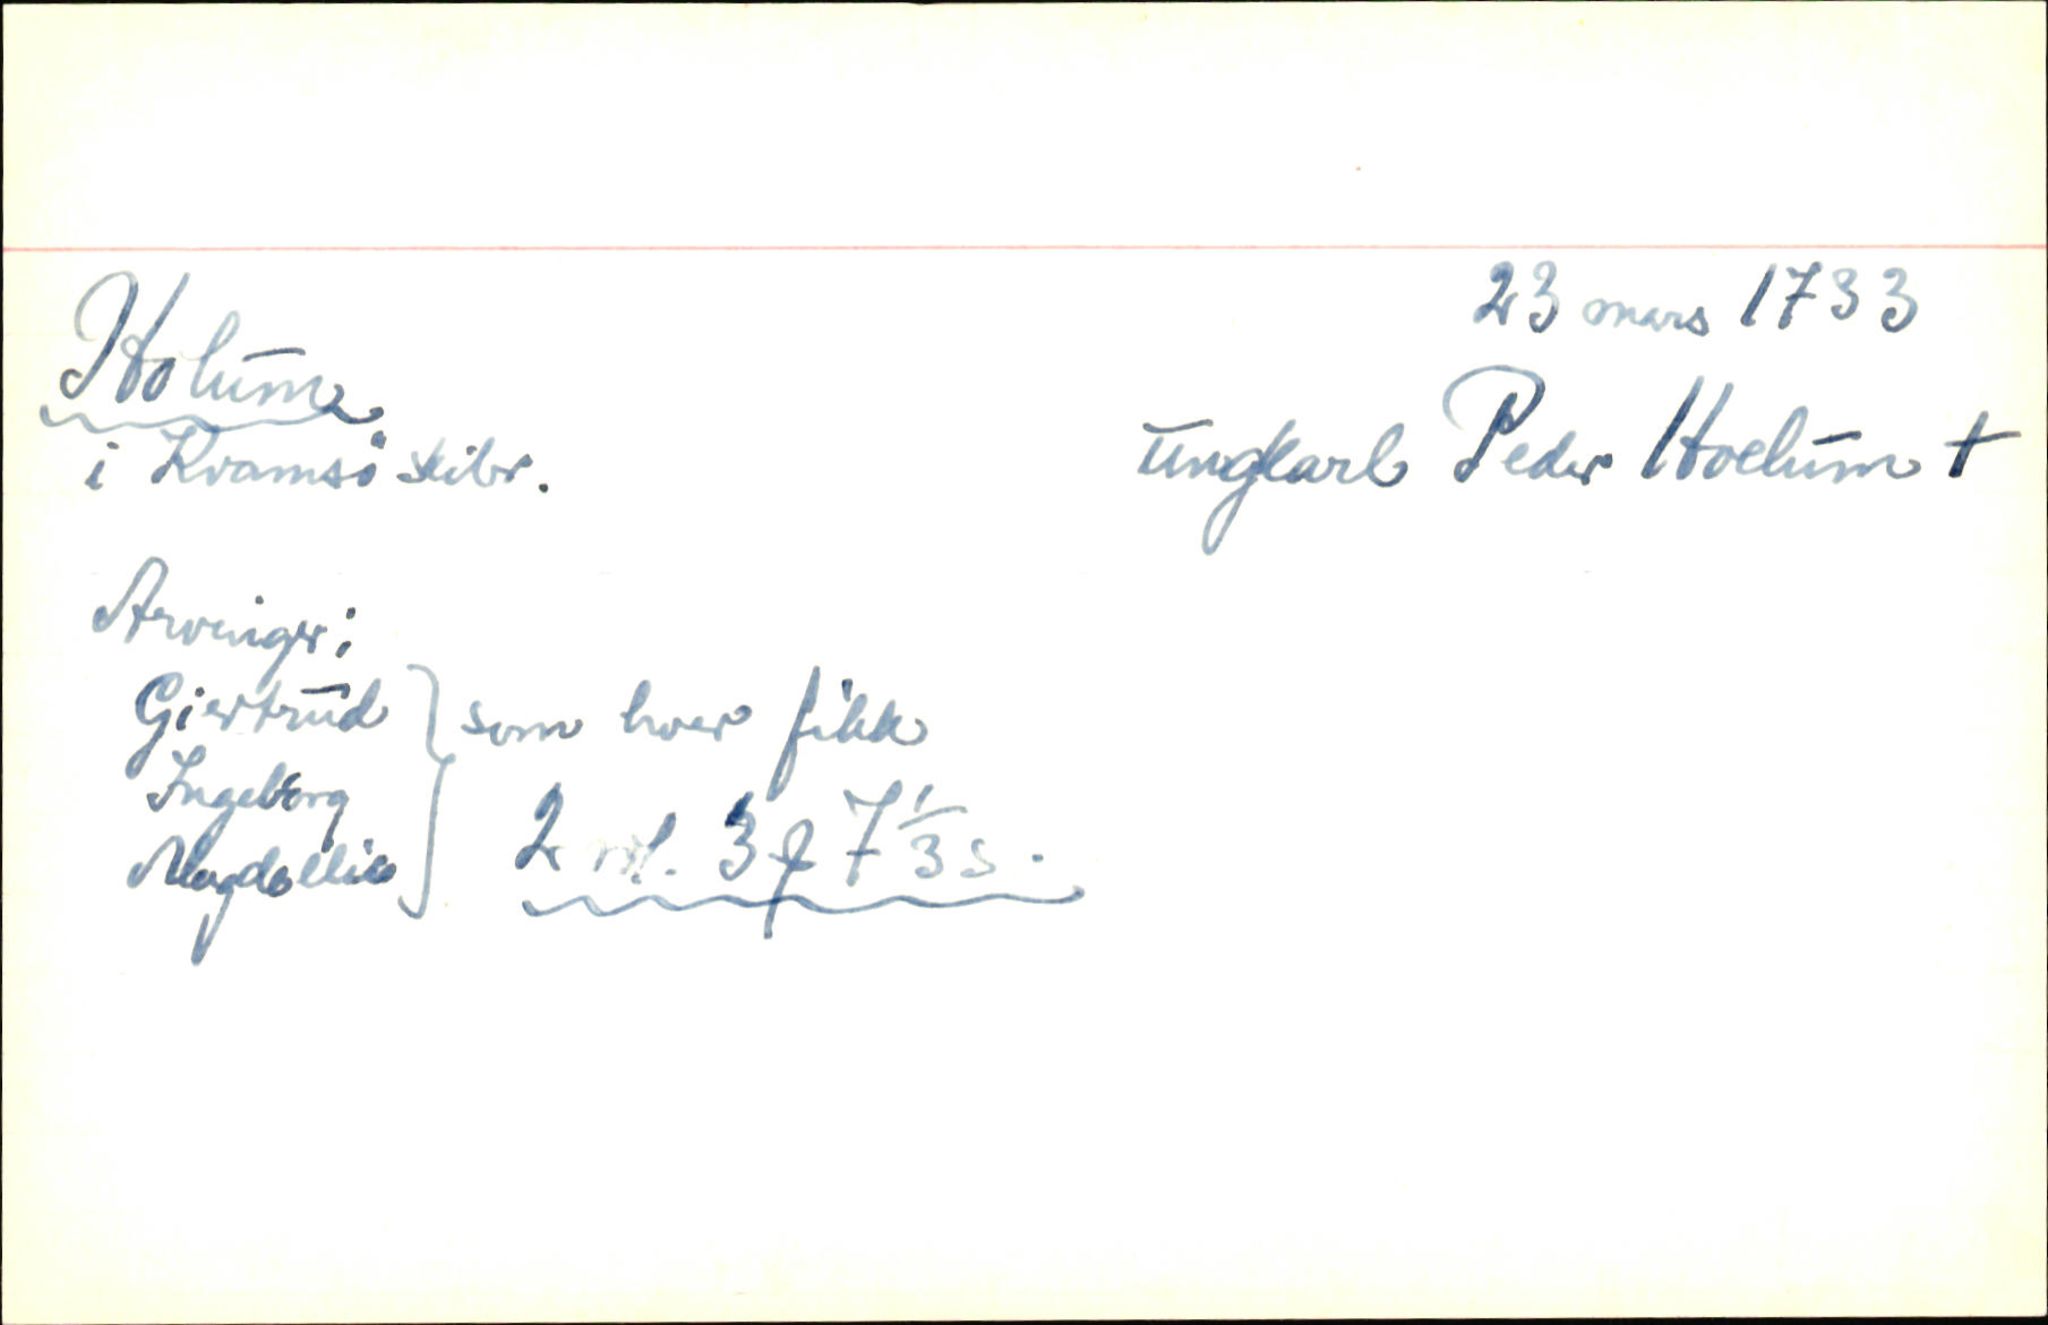 23 mars 1733
Holum
i Kvamsö skibr.
ungkarl Peder Hoelum †
Arvinger:
Giertrud } som hver fikk
Ingeborg
Magdollis } 2 rd. 3 ꝗ 7 1/3 s.